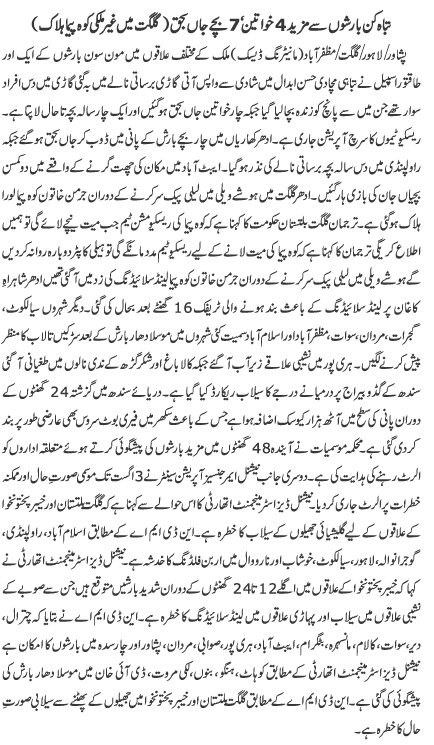 تباہ کن بارشوں سے مزید 4 خواتین، 7 بچے جاں بحق (گلگت میں غیر ملکی کوہ پیما ہلاک)
پشاور/لاہور/گلگت/مظفر آباد (مانیٹرنگ ڈیسک) ملک کے مختلف علاقوں میں مون سون بارشوں کے ایک اور
طاقتور اسپیل نے تباہی مچا دی حسن ابدال میں شادی سے واپس آتی گاڑی برساتی نالے میں بہہ گئی گاڑی میں دس افراد
سوار تھے جن میں سے پانچ کو زندہ بچا لیا گیا جبکہ چار خواتین جاں بحق ہوگئیں اور ایک چار سالہ بچہ تا حال لاپتا ہے۔
ریسکیو ٹیموں کا سرچ آپریشن جاری ہے۔ ادھر کھاریاں میں چار بچے بارش کے پانی میں ڈوب کر جاں بحق ہوگئے جبکہ
راولپنڈی میں دس سالہ بچہ برساتی نالے کی نذر ہوگیا۔ ایبٹ آباد میں مکان کی چھت گرنے کے واقعے میں دو کمسن
بچیاں جان کی بازی ہار گئیں۔ ادھر گلگت میں ہوشے ویلی میں لیلیٰ پیک سر کرنے کے دوران جرمن خاتون کوہ پیما لورا
ہلاک ہوگئی ہے۔ ترجمان گلگت بلتستان حکومت کا کہنا ہے کہ کوہ پیما کی ریسکیو مشن ٹیم جب میت نیچے لائے گی تو ہمیں
اطلاع کریگی ترجمان کا کہنا ہے کہ کوہ پیما کی میت لانے کے لیے ریسکیو ٹیم مدد مانگے گی تو ہیلی کاپٹر دوبارہ روانہ کر دیں
گے ہوشے ویلی میں لیلیٰ پیک سر کرنے کے دوران جرمن خاتون کوہ پیما لینڈ سلائیڈنگ کی زد میں آ گئی تھیں ادھر شاہراہِ
کاغان پر لینڈ سلائیڈنگ کے باعث بند ہونے والی ٹریفک 16 گھنٹے بعد بحال کی گئی۔ دیگر شہروں سیالکوٹ،
گجرات، مردان، سوات، مظفر آباد اور اسلام آباد سمیت کئی شہروں میں موسلا دھار بارش کے بعد سڑکیں تالاب کا منظر
پیش کرنے لگیں۔ ہری پور میں نشیبی علاقے زیر آب آ گئے جبکہ کالا باغ اور شکر گڑھ کے ندی نالوں میں طغیانی آ گئی
سندھ کے گڈو بیراج پر درمیانے درجے کا سیلاب ریکارڈ کیا گیا ہے۔ دریائے سندھ میں گزشتہ 24 گھنٹوں کے
دوران پانی کی سطح میں آٹھ ہزار کیوسک اضافہ ہوا ہے جس کے باعث سکھر میں فیری بوٹ سروس بھی عارضی طور پر بند
کر دی گئی ہے۔ محکمہ موسمیات نے آئندہ 48 گھنٹوں میں مزید بارشوں کی پیشگوئی کرتے ہوئے متعلقہ اداروں کو
الرٹ رہنے کی ہدایت کی ہے۔ دوسری جانب نیشنل ایمرجنسیز آپریشن سینٹر نے 3 اگست تک موسمی صورتِ حال اور ممکنہ
خطرات پر الرٹ جاری کر دیا۔ نیشنل ڈیزاسٹر مینجمنٹ اتھارٹی کا اس حوالے سے کہنا ہے کہ گلگت بلتستان اور خیبر پختونخوا
کے علاقوں کے لیے گلیشیائی جھیلوں کے سیلاب کا خطرہ ہے۔ این ڈی ایم اے کے مطابق اسلام آباد، راولپنڈی،
گوجرانوالہ، لاہور، سیالکوٹ، خوشاب اور نارووال میں اربن فلڈنگ کا خدشہ ہے۔ نیشنل ڈیزاسٹر مینجمنٹ اتھارٹی نے
کہا کہ خیبر پختونخوا کے علاقوں میں اگلے 12 تا 24 گھنٹوں کے دوران شدید بارشیں متوقع ہیں جن سے صوبے کے
نشیبی علاقوں میں سیلاب اور پہاڑی علاقوں میں لینڈ سلائیڈنگ کا خطرہ ہے۔ این ڈی ایم اے نے بتایا کہ چترال،
دیر، سوات، کالام، مانسہرہ، بٹگرام، ایبٹ آباد، ہری پور، صوابی، مردان، پشاور اور چارسدہ میں بارشوں کا امکان ہے
نیشنل ڈیزاسٹر مینجمنٹ اتھارٹی کے مطابق کوہاٹ، ہنگو، بنوں، لکی مروت، ڈی آئی خان میں موسلا دھار بارش کی
پیشگوئی کی گئی ہے۔ این ڈی ایم اے کے مطابق گلگت بلتستان اور خیبر پختونخوا میں جھیلوں کے پھٹنے سے سیلابی صورتِ
حال کا خطرہ ہے۔